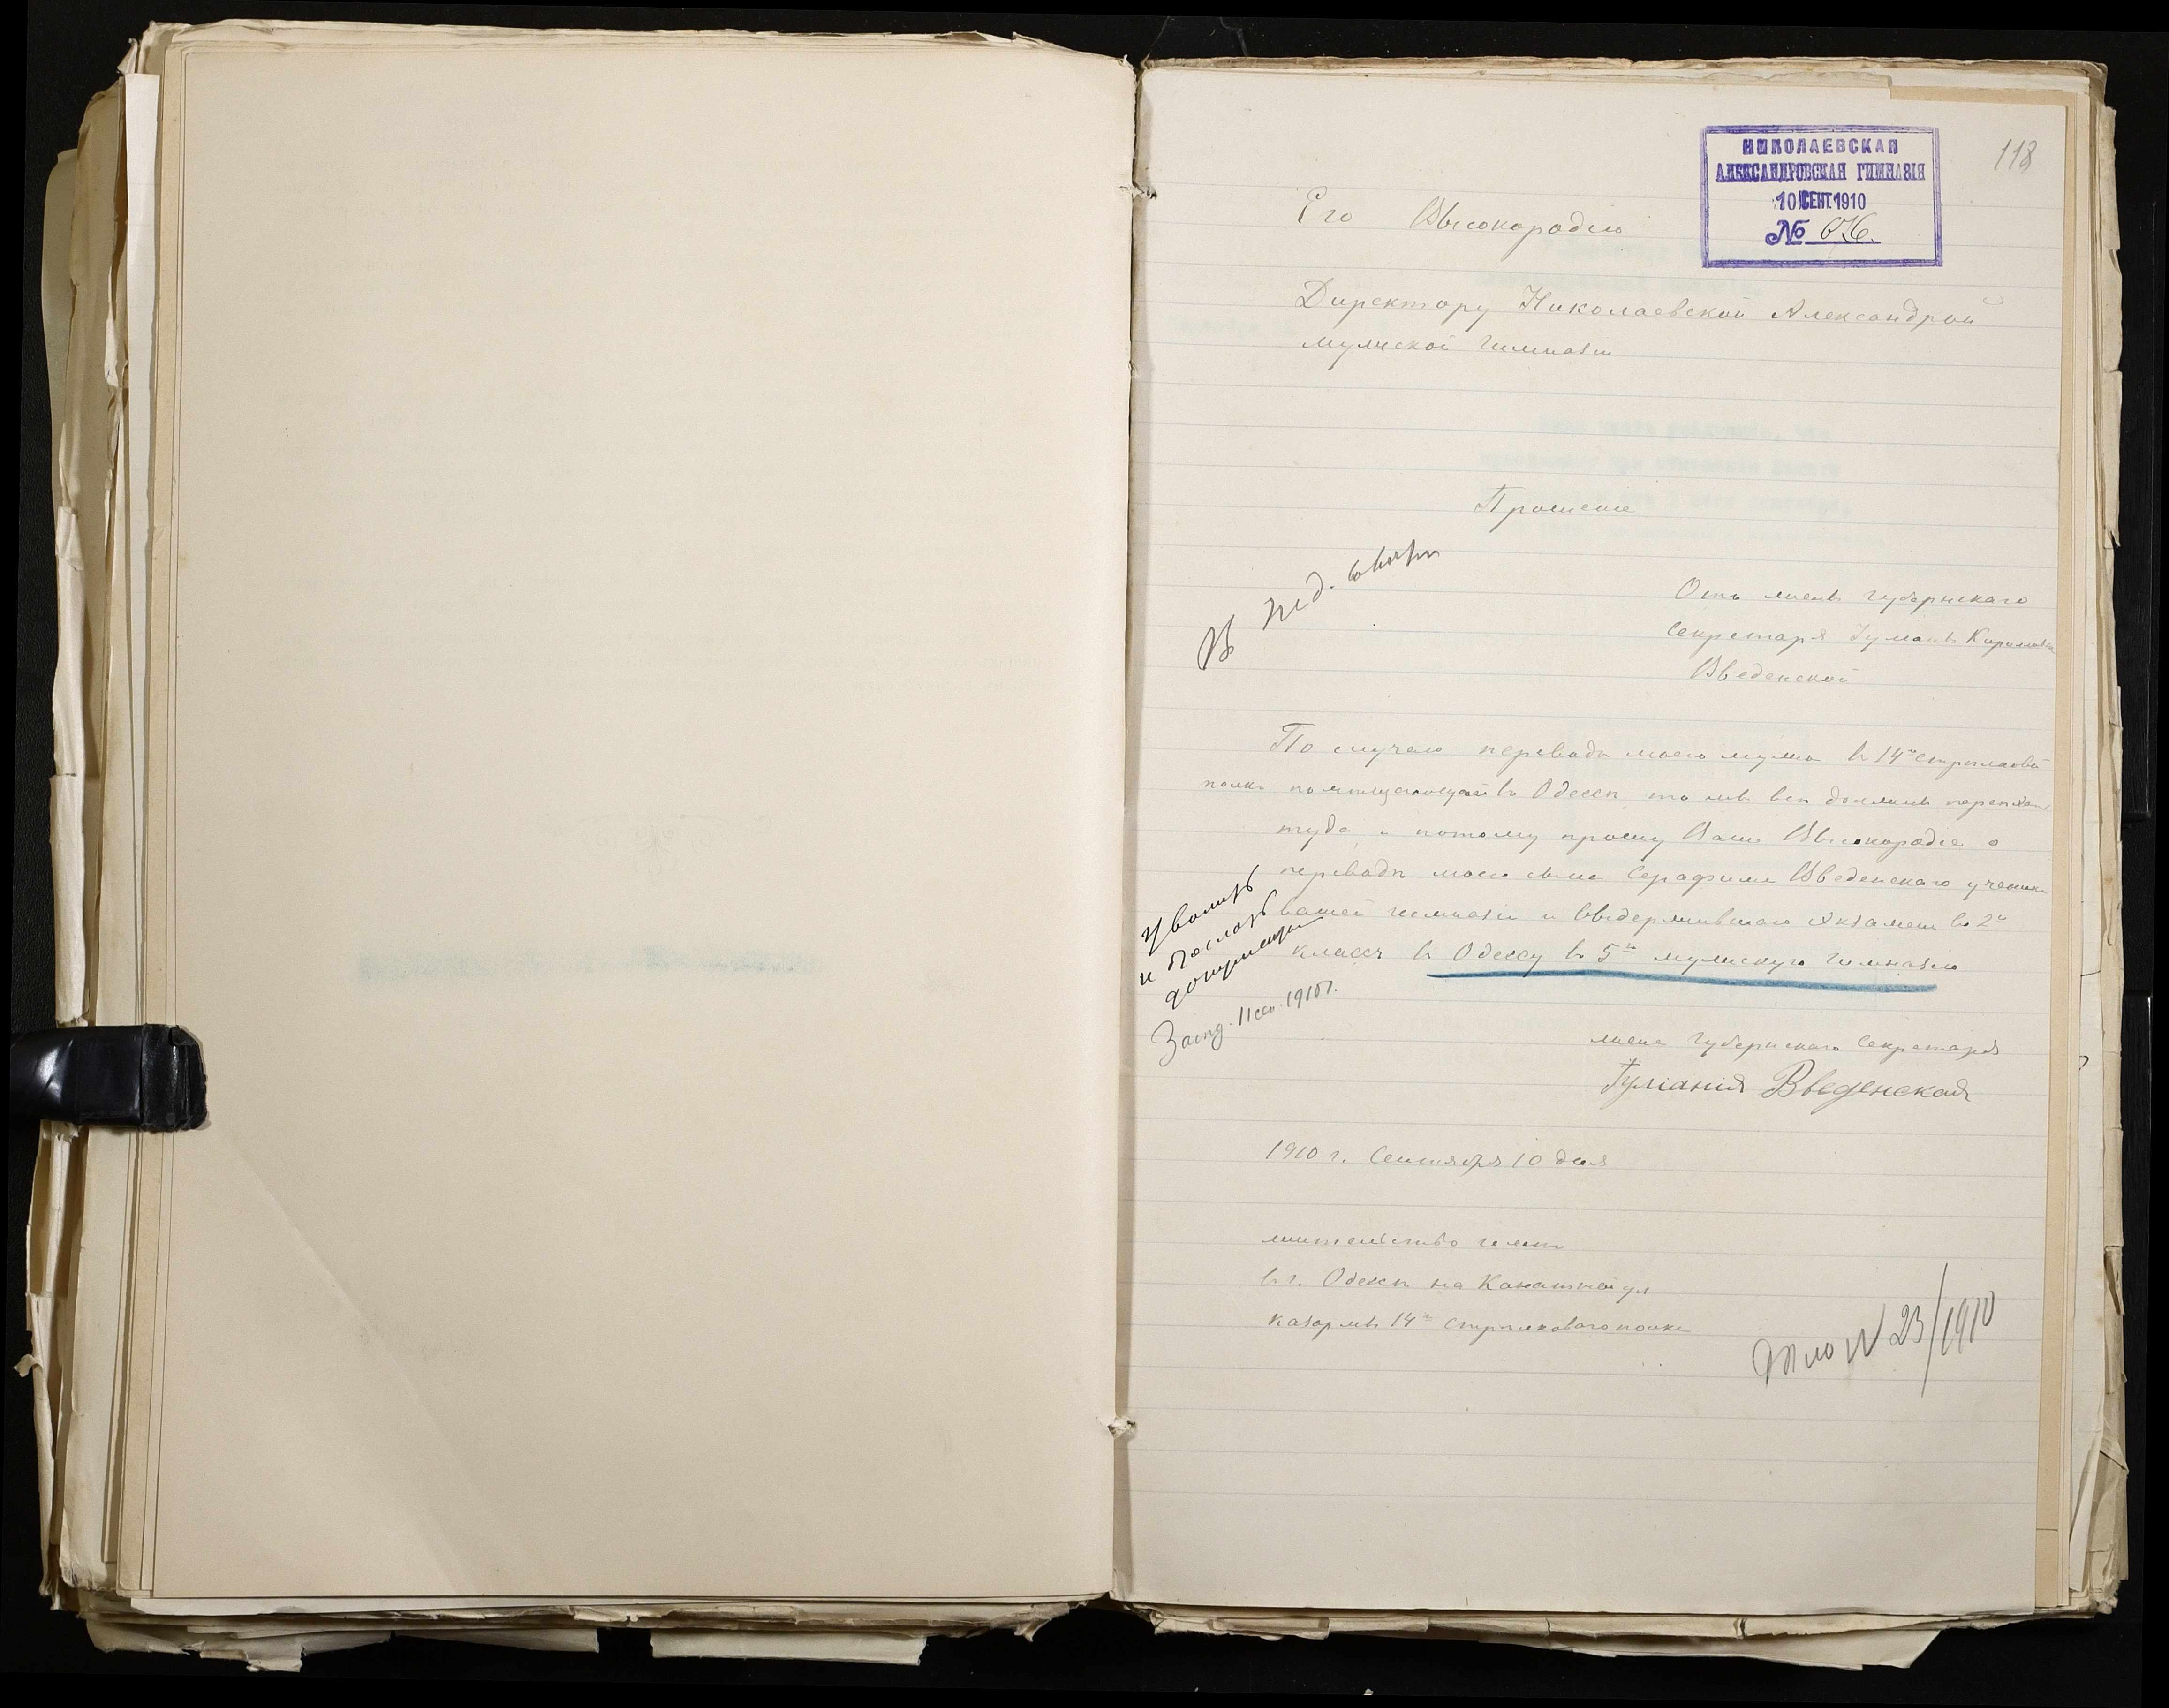 118
НИКОЛАЕВСКАЯ
АЛЕКСАНДРОВСКАЯ ГИМНАЗІЯ
10 СЕНТ. 1910
№ 676.
Его Высокородію
Директору Николаевской Александрой
мужской гимназіи
Прошеніе
В пед. совѣтъ
Отъ жены губернскаго
Секретаря Кириловны
Введенской
По случаю перевода моего мужа в 14й стрѣлковый
полкъ в Одессѣ то мы всѣ должны переѣхать
туда и потому прошу Ваше Высокородіе о
переводѣ моего сына Серафима Введенскаго ученика
вашей гимназіи и выдержившаго экзамен во 2й
классъ в Одессу в 5ю мужскую гимназію
Уволить
и послать
документы
Засѣд. 11 сен. 1910 г.
жена губернскаго Секретаря
Іуліанія Введенская
1910 г. Сентября 10 дня
жительство имѣю
в г. Одессѣ на Канатной ул
казармы 14го стрѣлковаго полка
Дѣло № 23/1910